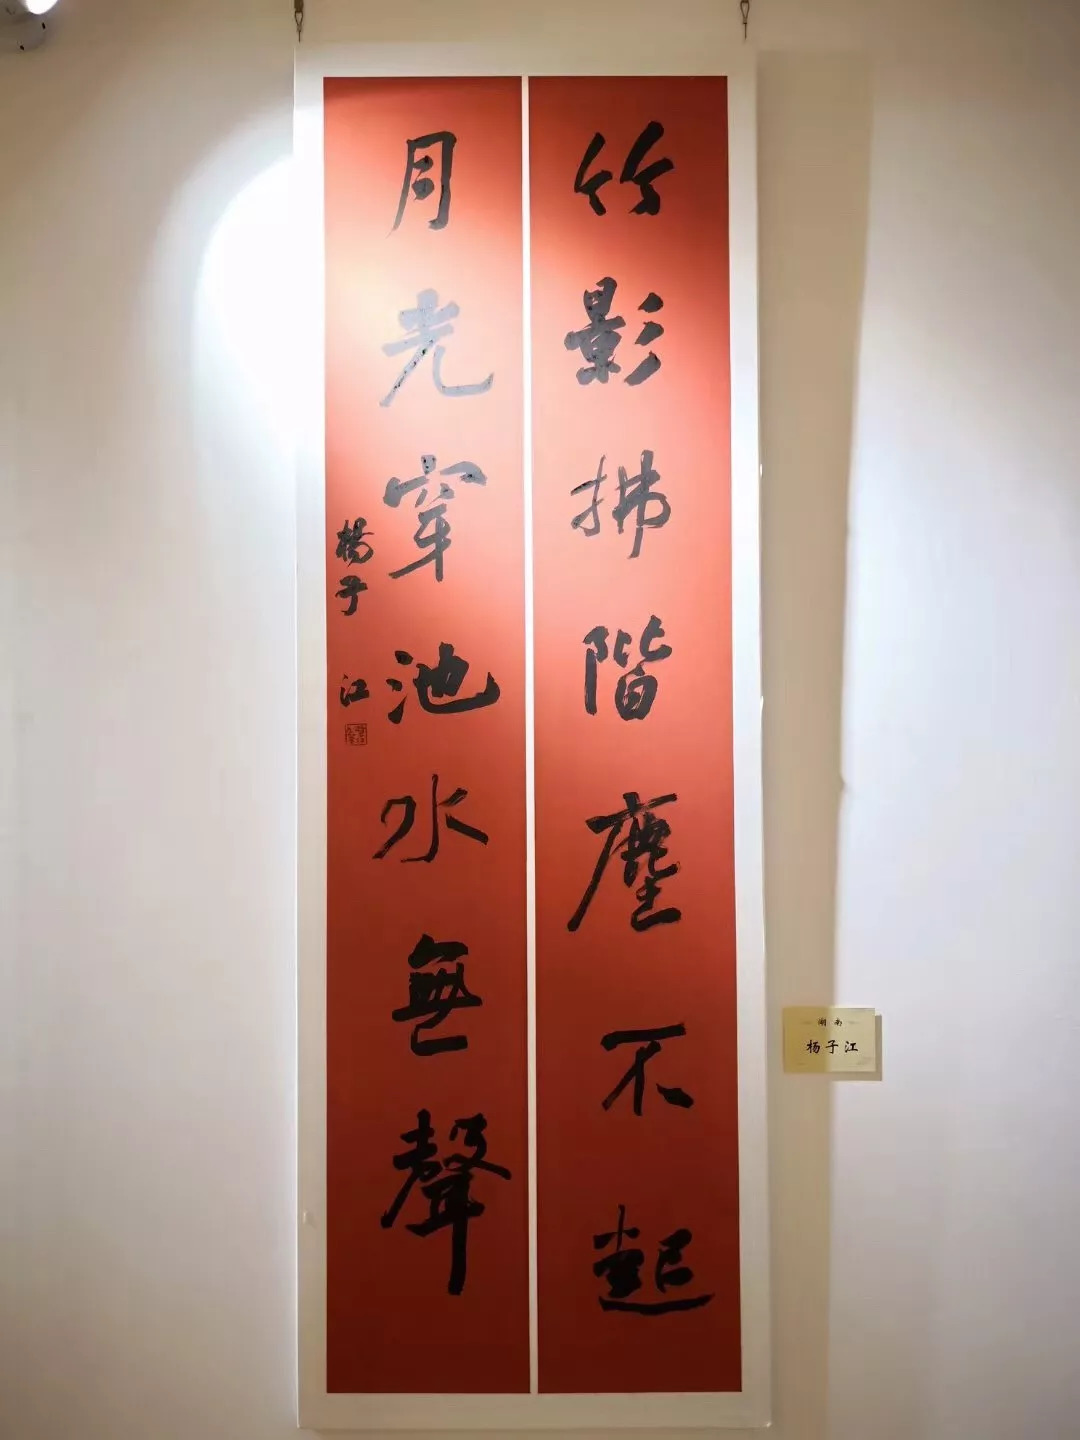 竹影拂階塵不起
月光穿池水無聲
楊子江
湖南
杨子江